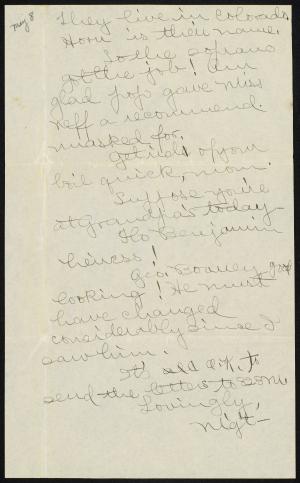 May 8
They live in Colorado.
Horn is their name.
So the soprano
got the job! Am
glad Jojo gave Miss
Neff a recommend.
masked for.
Get rid of your
boil quick, mom.
Suppose you're
at Grandpa's today
Ho Benjamin
Geo. good
looking! He must
have changed
considerably since I
saw him.
It's O.K. to
send the letters to
Lovingly,